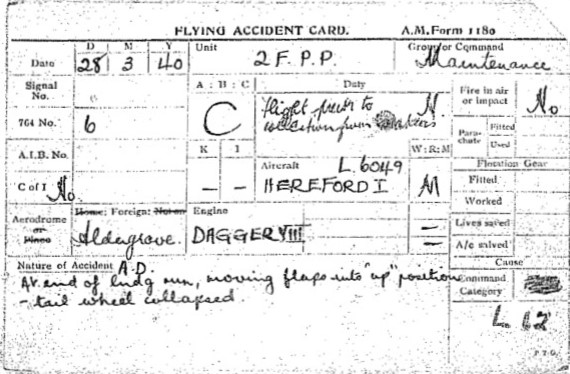 FLYING ACCIDENT CARD. A.M. Form 1180
D M Y
Date 28 3 40
Unit 2 F.P.P.
Group or Command Maintenance
Signal No.
764 No. 6
A.I.B. No.
C of I No
A : B : C
C
K I
– –
Duty
flight prior to N
collection from
Aircraft L.6049
HEREFORD I
W : R : M
M
Fire in air or impact No
Parachute Fitted
Used
Flotation Gear
Fitted
Worked
Lives saved –
A/c salved –
Aerodrome or Place
Home: Foreign: Not on
Aldergrove.
Engine
DAGGER VIII
Nature of Accident A.D.
At end of lndg run, moving flaps into "up" position
- tail wheel collapsed.
Cause
Command Category
L 12
P.T.O.